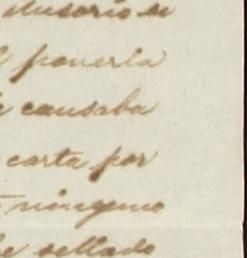 ilusorio se
ponerla
causaba
carta por
ninguno
sellado